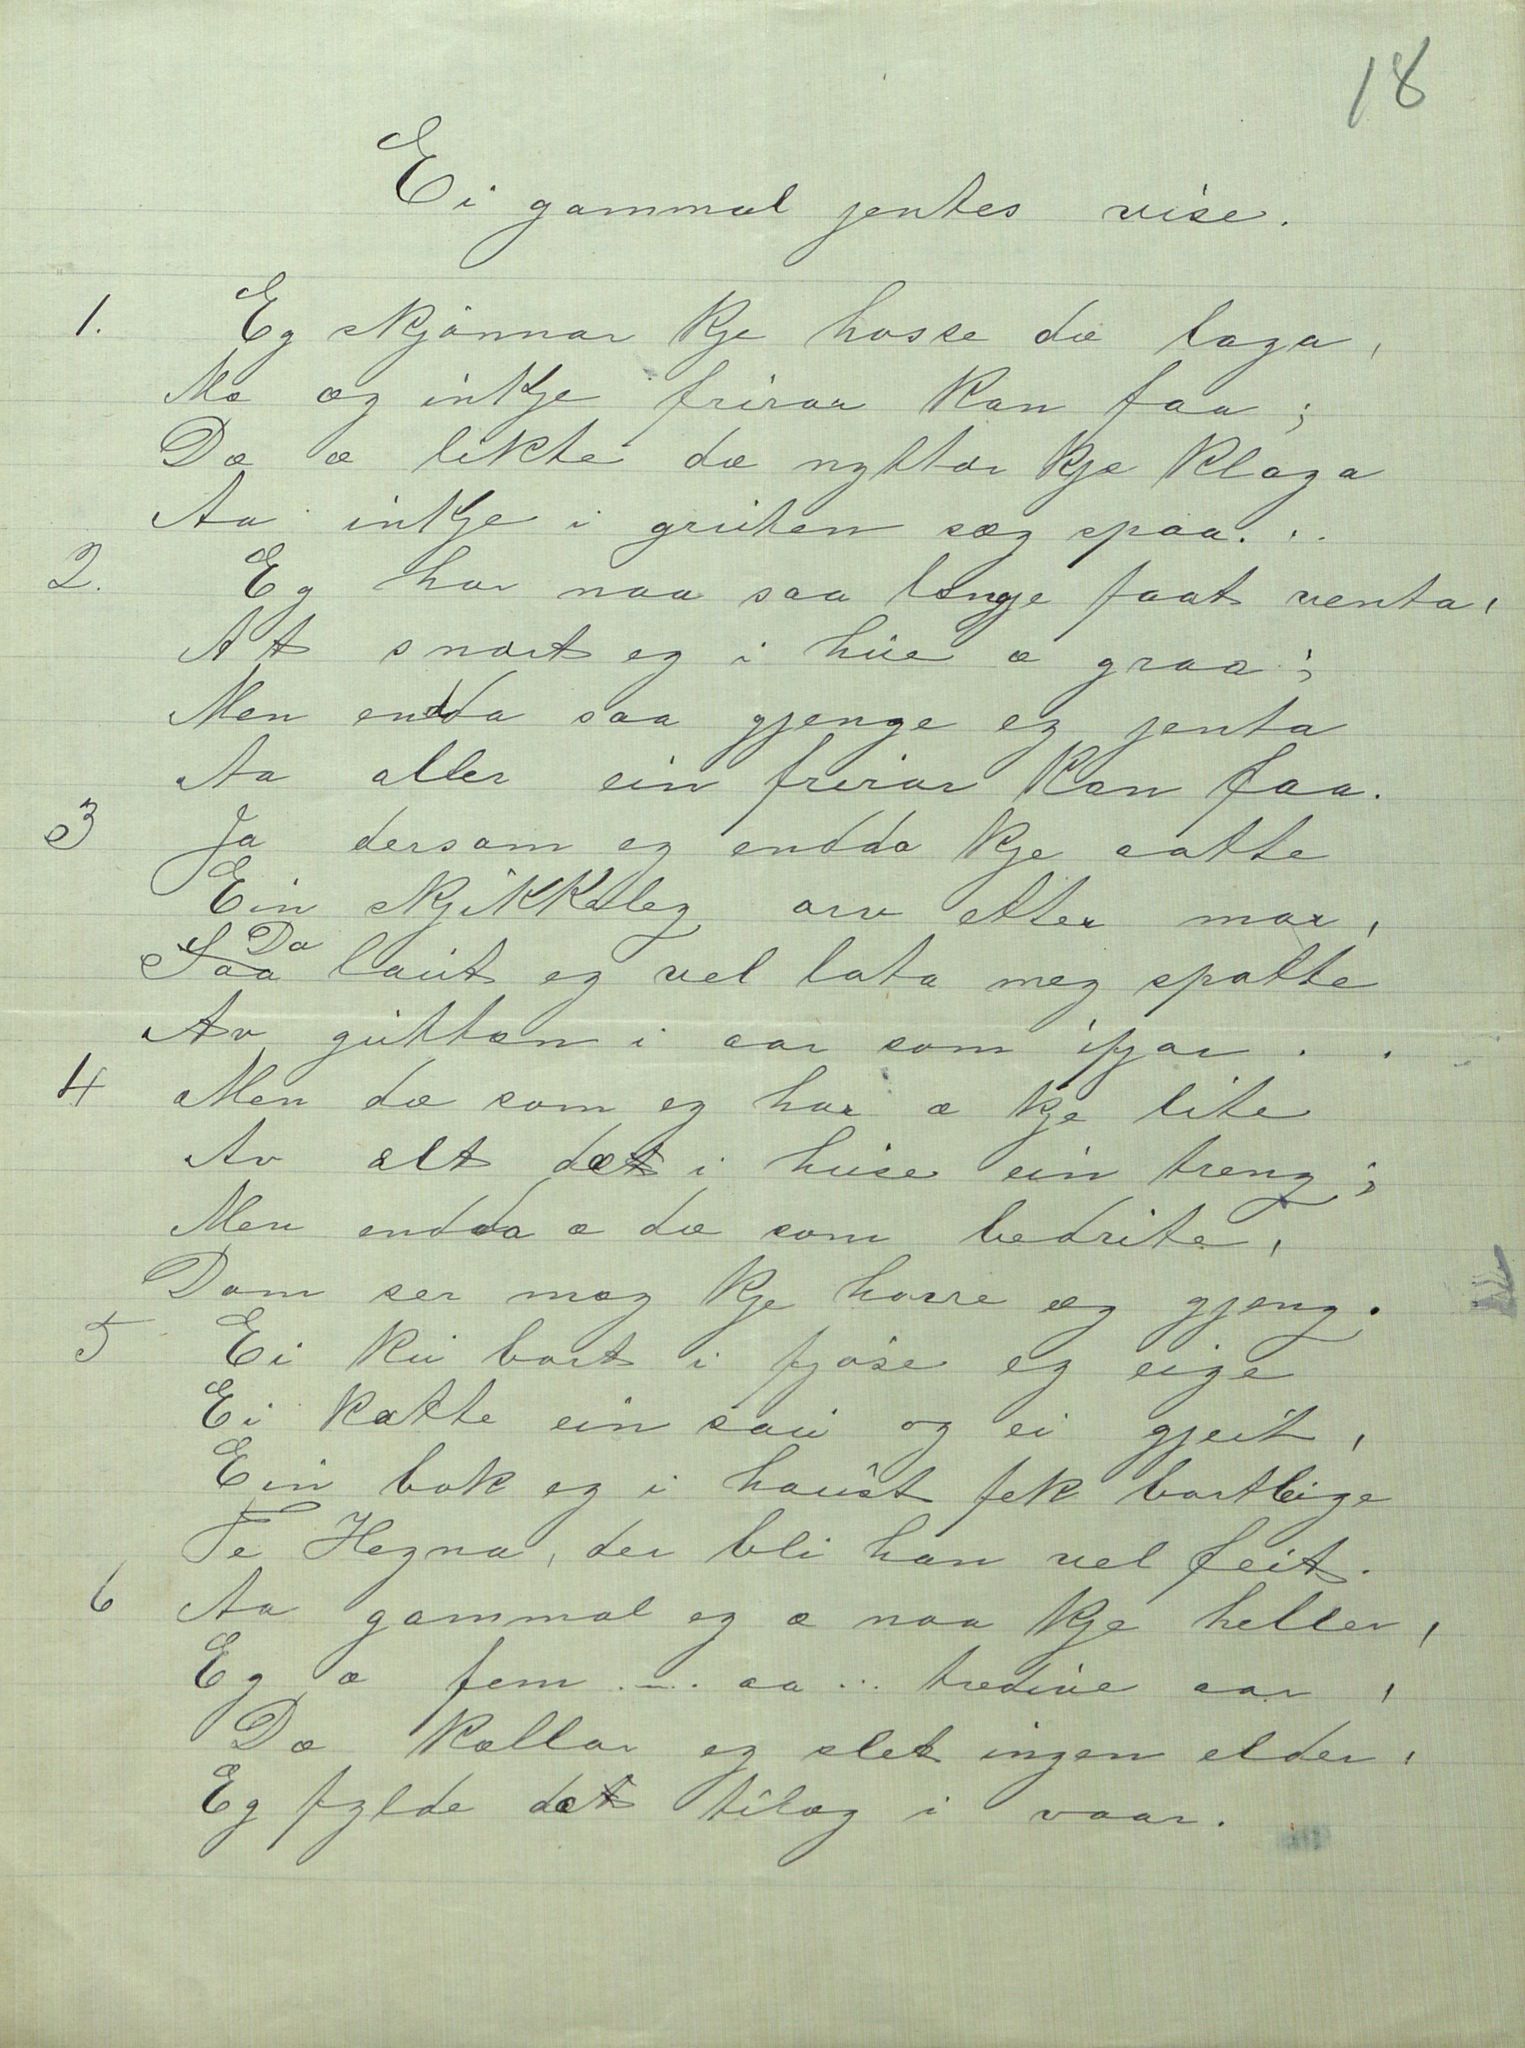 18
Ei gammal jentes vise.
1. Eg skjönnar kje hosse dæ laga,
Me æg inkje frirar kan faa;
Dæ æ likte dæ nyttar kje klaga
Aa inkje i gruten sæg spaa. . .
2. Eg har naa saa længe faat venta,
At snart eg i hue æ graa;
Men endda saa gjenge eg jenta
Aa aller ein frirar kan faa.
3 Ja dersom eg endda kje aatte
Ein skjikkeleg arv etter mor,
Saa Da laut eg vel lata meg spotte
Av guttan i aar som ifjor . .
4 Men dæ som eg har æ kje lite
Av alt dæt i huse ein treng;
Men endda æ dæ som bedrite,
Dom ser mæg kje horre æg gjeng.
5 Ei ku bort i fjøse eg eige
Ei katte ein sau og ei gjeit,
Ein bok eg i haust fek bortleige
Te Hegna, der bli han vel feit.
6 Aa gammal eg æ naa kje heller,
Eg æ fem .... aa ... tredive aar,
Dæ kallar eg slet ingen elder,
Eg fylde dæt tilag i vaar.